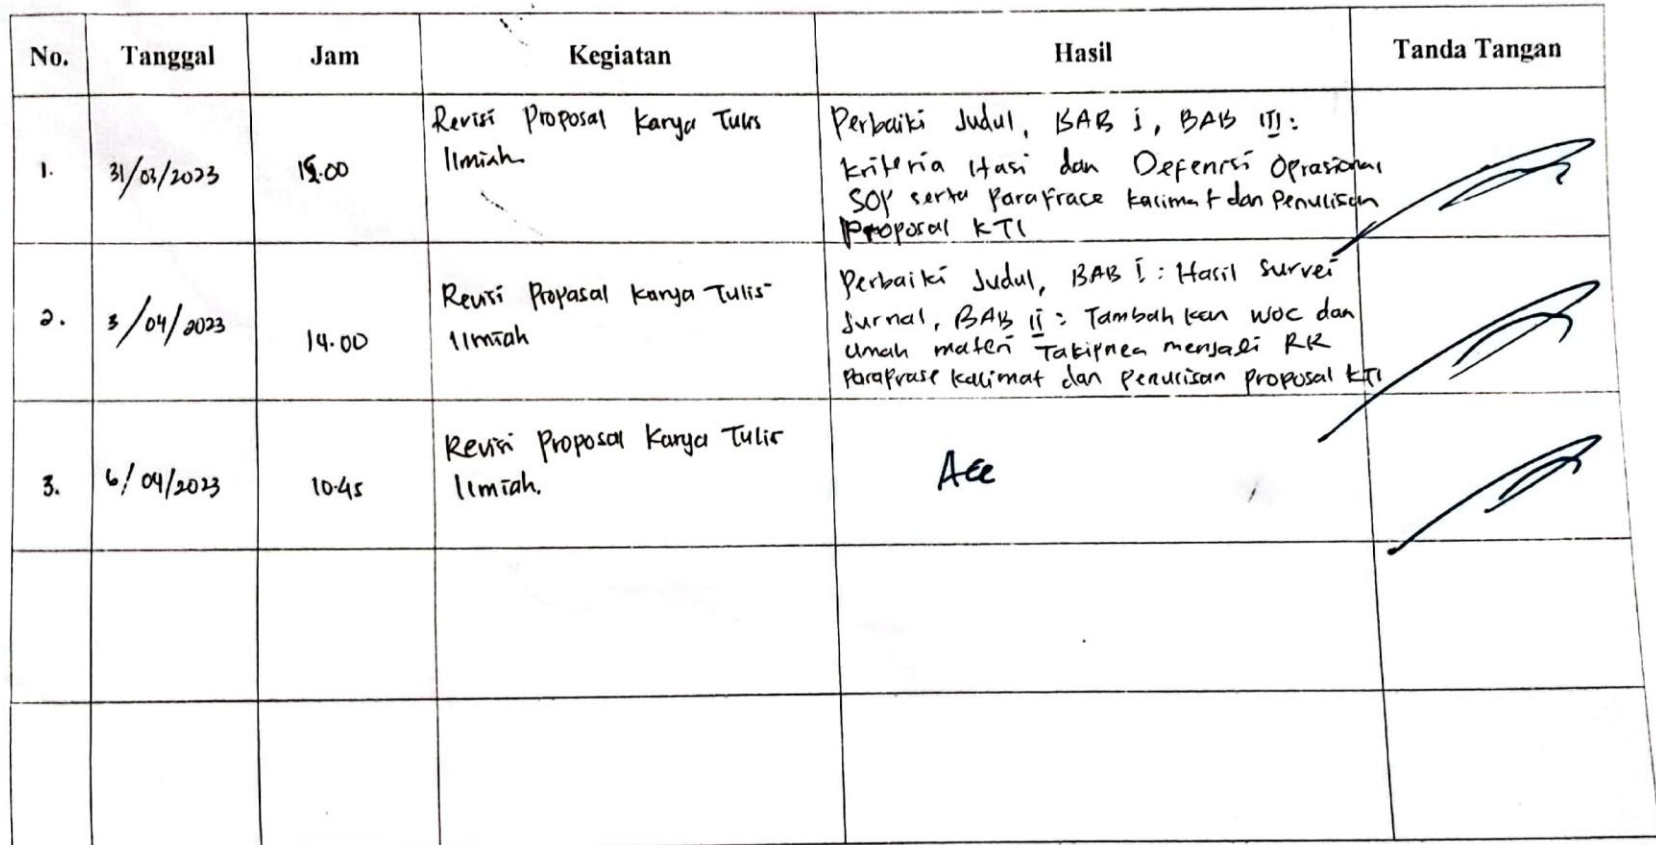 No. Tanggal Jam Kegiatan Hasil Tanda Tangan
1. 31/03/2023 15.00
Revisi Proposal Karya Tulis
Ilmiah
Perbaiki Judul, BAB I, BAB III:
Kriteria Hasi dan Defenisi Oprasional
SOP serta Parafrace kalimat dan Penulisan
Proposal KTI
2. 3/04/2023 14.00
Revisi Propasal Karya Tulis
Ilmiah
Perbaiki Judul, BAB I: Hasil Survei
Jurnal, BAB II: Tambah kan WOC dan
Umah materi Takipnea menjadi RR
Parafrase kalimat dan penulisan proposal KTI
3. 6/04/2023 10.45
Revisi Proposal Karya Tulis
Ilmiah.
Acc